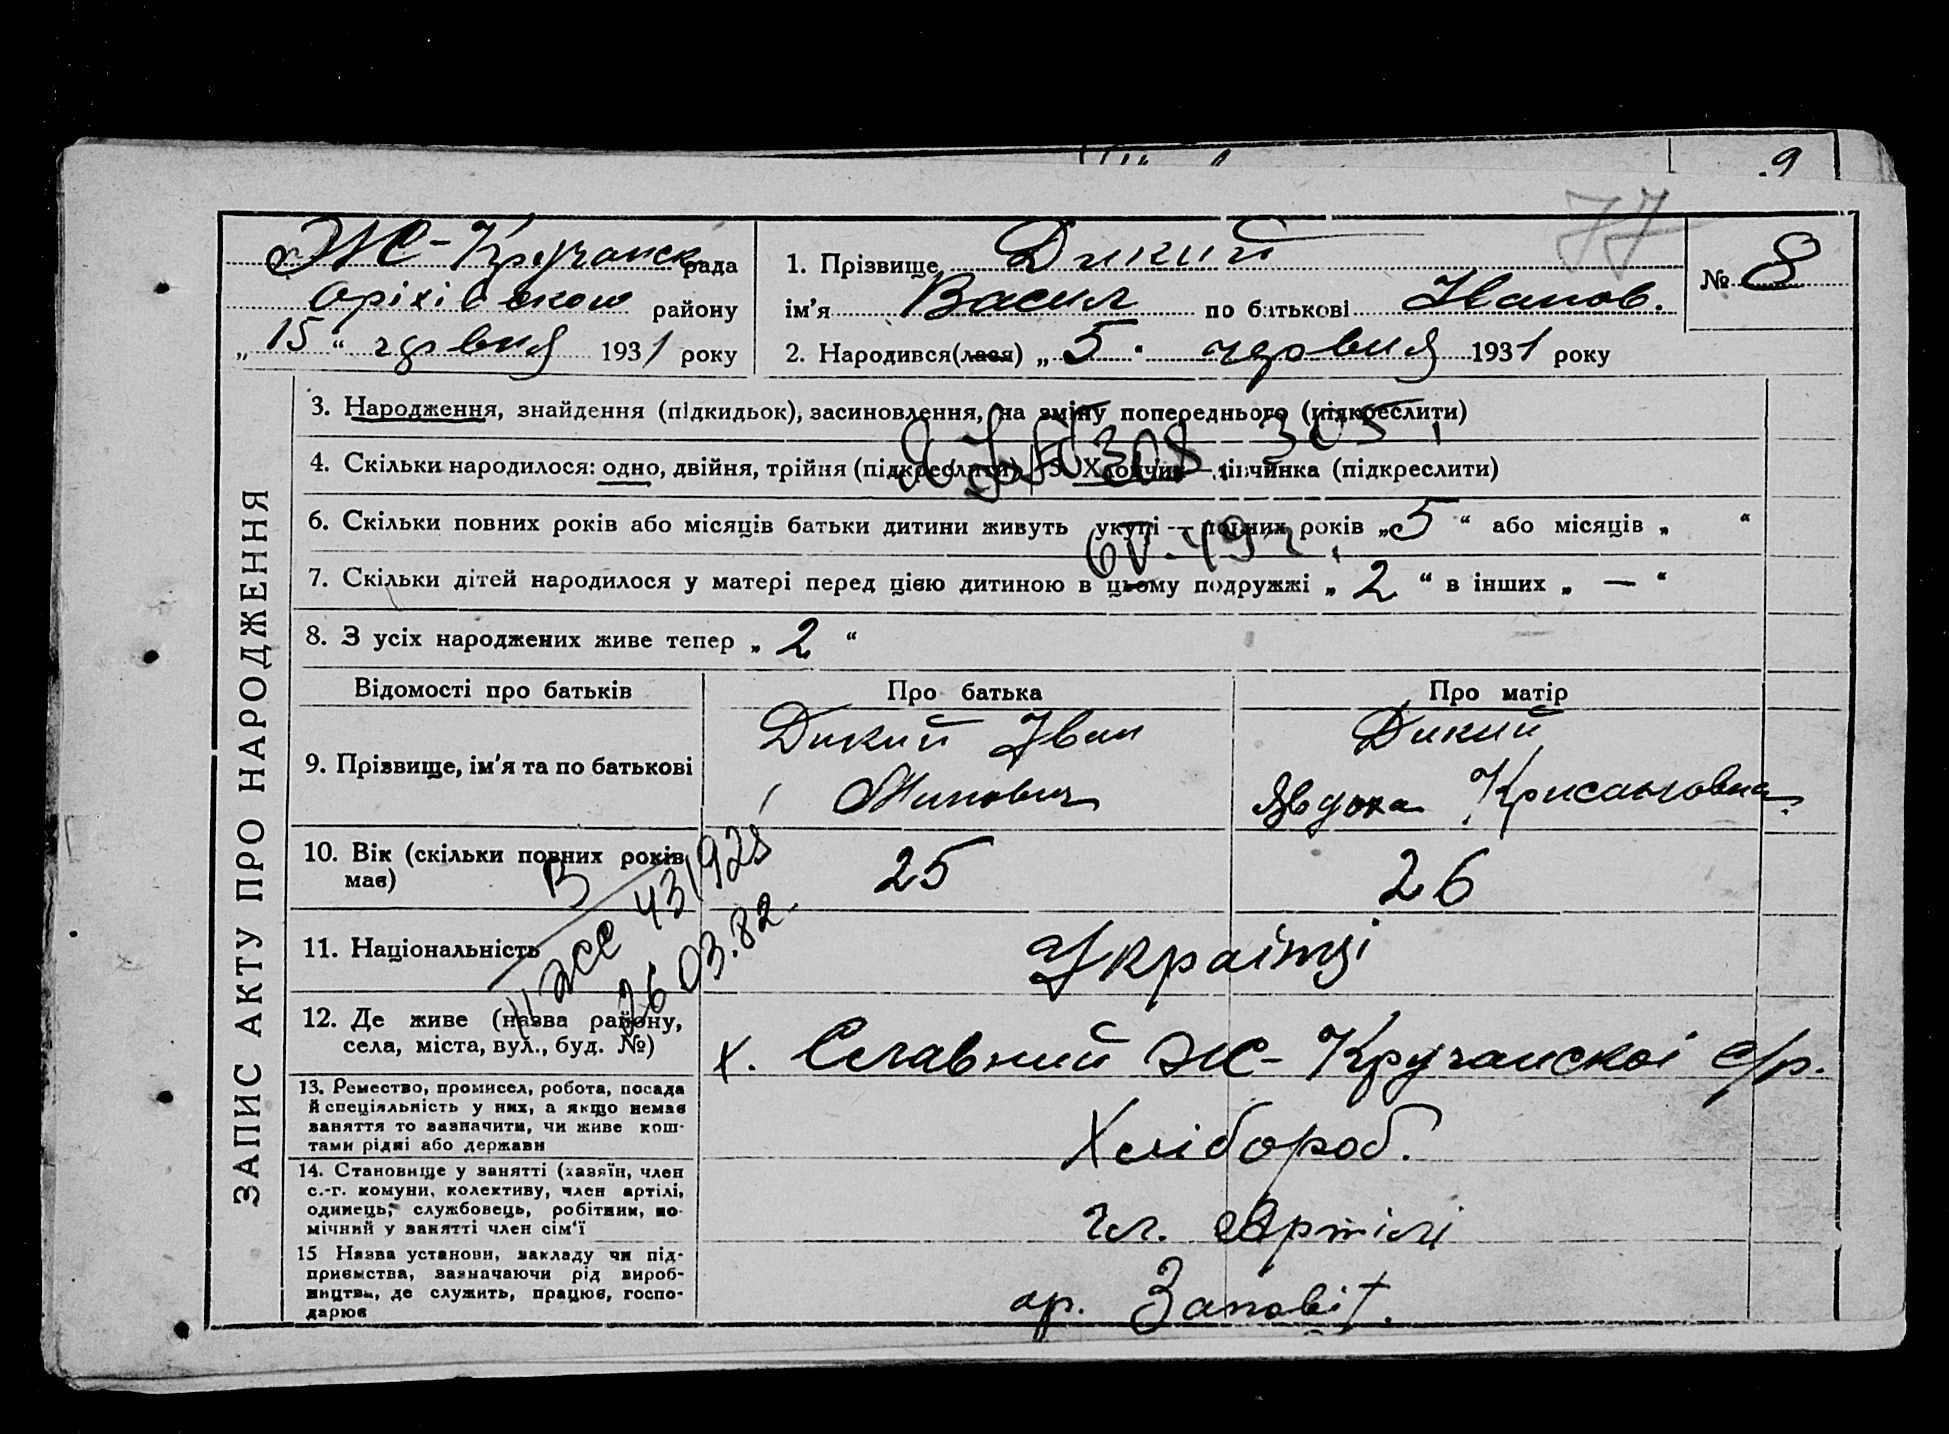 9
77
Ж-Кручанск рада
Оріхівськ району
„15“ червня 1931 року
1. Прізвище Дикий
ім'я Васил по батькові Іванов.
2. Народився(лася) „5“ червня 1931 року
№ 8
ЗАПИС АКТУ ПРО НАРОДЖЕННЯ
3. Народження, знайдення (підкидьок), засиновлення, на зміну попереднього (підкреслити)
4. Скільки народилося: одно, двійня, трійня (підкреслити) 5. Хлопчик — дівчинка (підкреслити)
308
6. Скільки повних років або місяців батьки дитини живуть укупі — повних років „5“ або місяців „ “
7. Скільки дітей народилося у матері перед цією дитиною в цьому подружжі „2“ в інших „—“
8. З усіх народжених живе тепер „2“
Відомості про батьків Про батька Про матір
9. Прізвище, ім'я та по батькові
Дикий Іван
Минович
Дикий
Явдоха Крисановна
10. Вік (скільки повних років
має)
25 26
26 03.82
11. Національність Українці
12. Де живе (назва району,
села, міста, вул., буд. №)
х. Славний Ж-Кручанскоі с/р.
13. Ремество, промисел, робота, посада
й спеціяльність у них, а якщо немає
заняття то зазначити, чи живе кош-
тами рідні або держави
Хлібороб.
14. Становище у занятті (хазяїн, член
с.-г. комуни, колективу, член артілі,
одинець, службовець, робітник, по-
мічний у занятті член сім'ї
чл. Артілі
15 Назва установи, закладу чи під-
приємства, зазначаючи рід вироб-
ництва, де служить, працює, госпо-
дарює
ар. Заповіт.